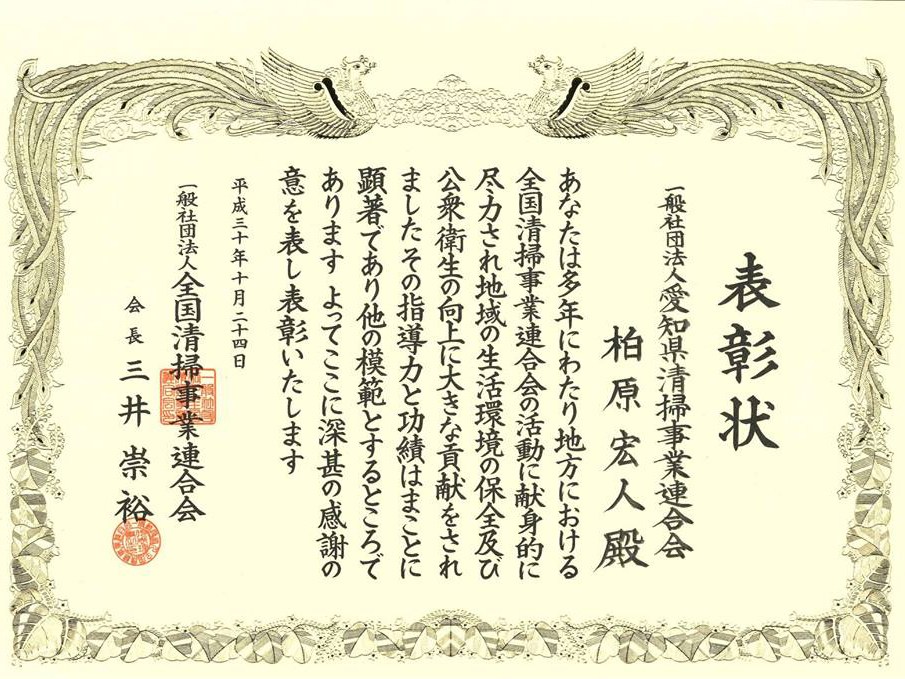 表彰状
一般社団法人愛知県清掃事業連合会
柏原宏人殿
あなたは多年にわたり地方における
全国清掃事業連合会の活動に献身的に
尽力され地域の生活環境の保全及び
公衆衛生の向上に大きな貢献をされ
ましたその指導力と功績はまことに
顕著であり他の模範とするところで
あります よってここに深甚の感謝の
意を表し表彰いたします
平成三十年十月二十四日
一般社団法人全国清掃事業連合会
会長 三井崇裕